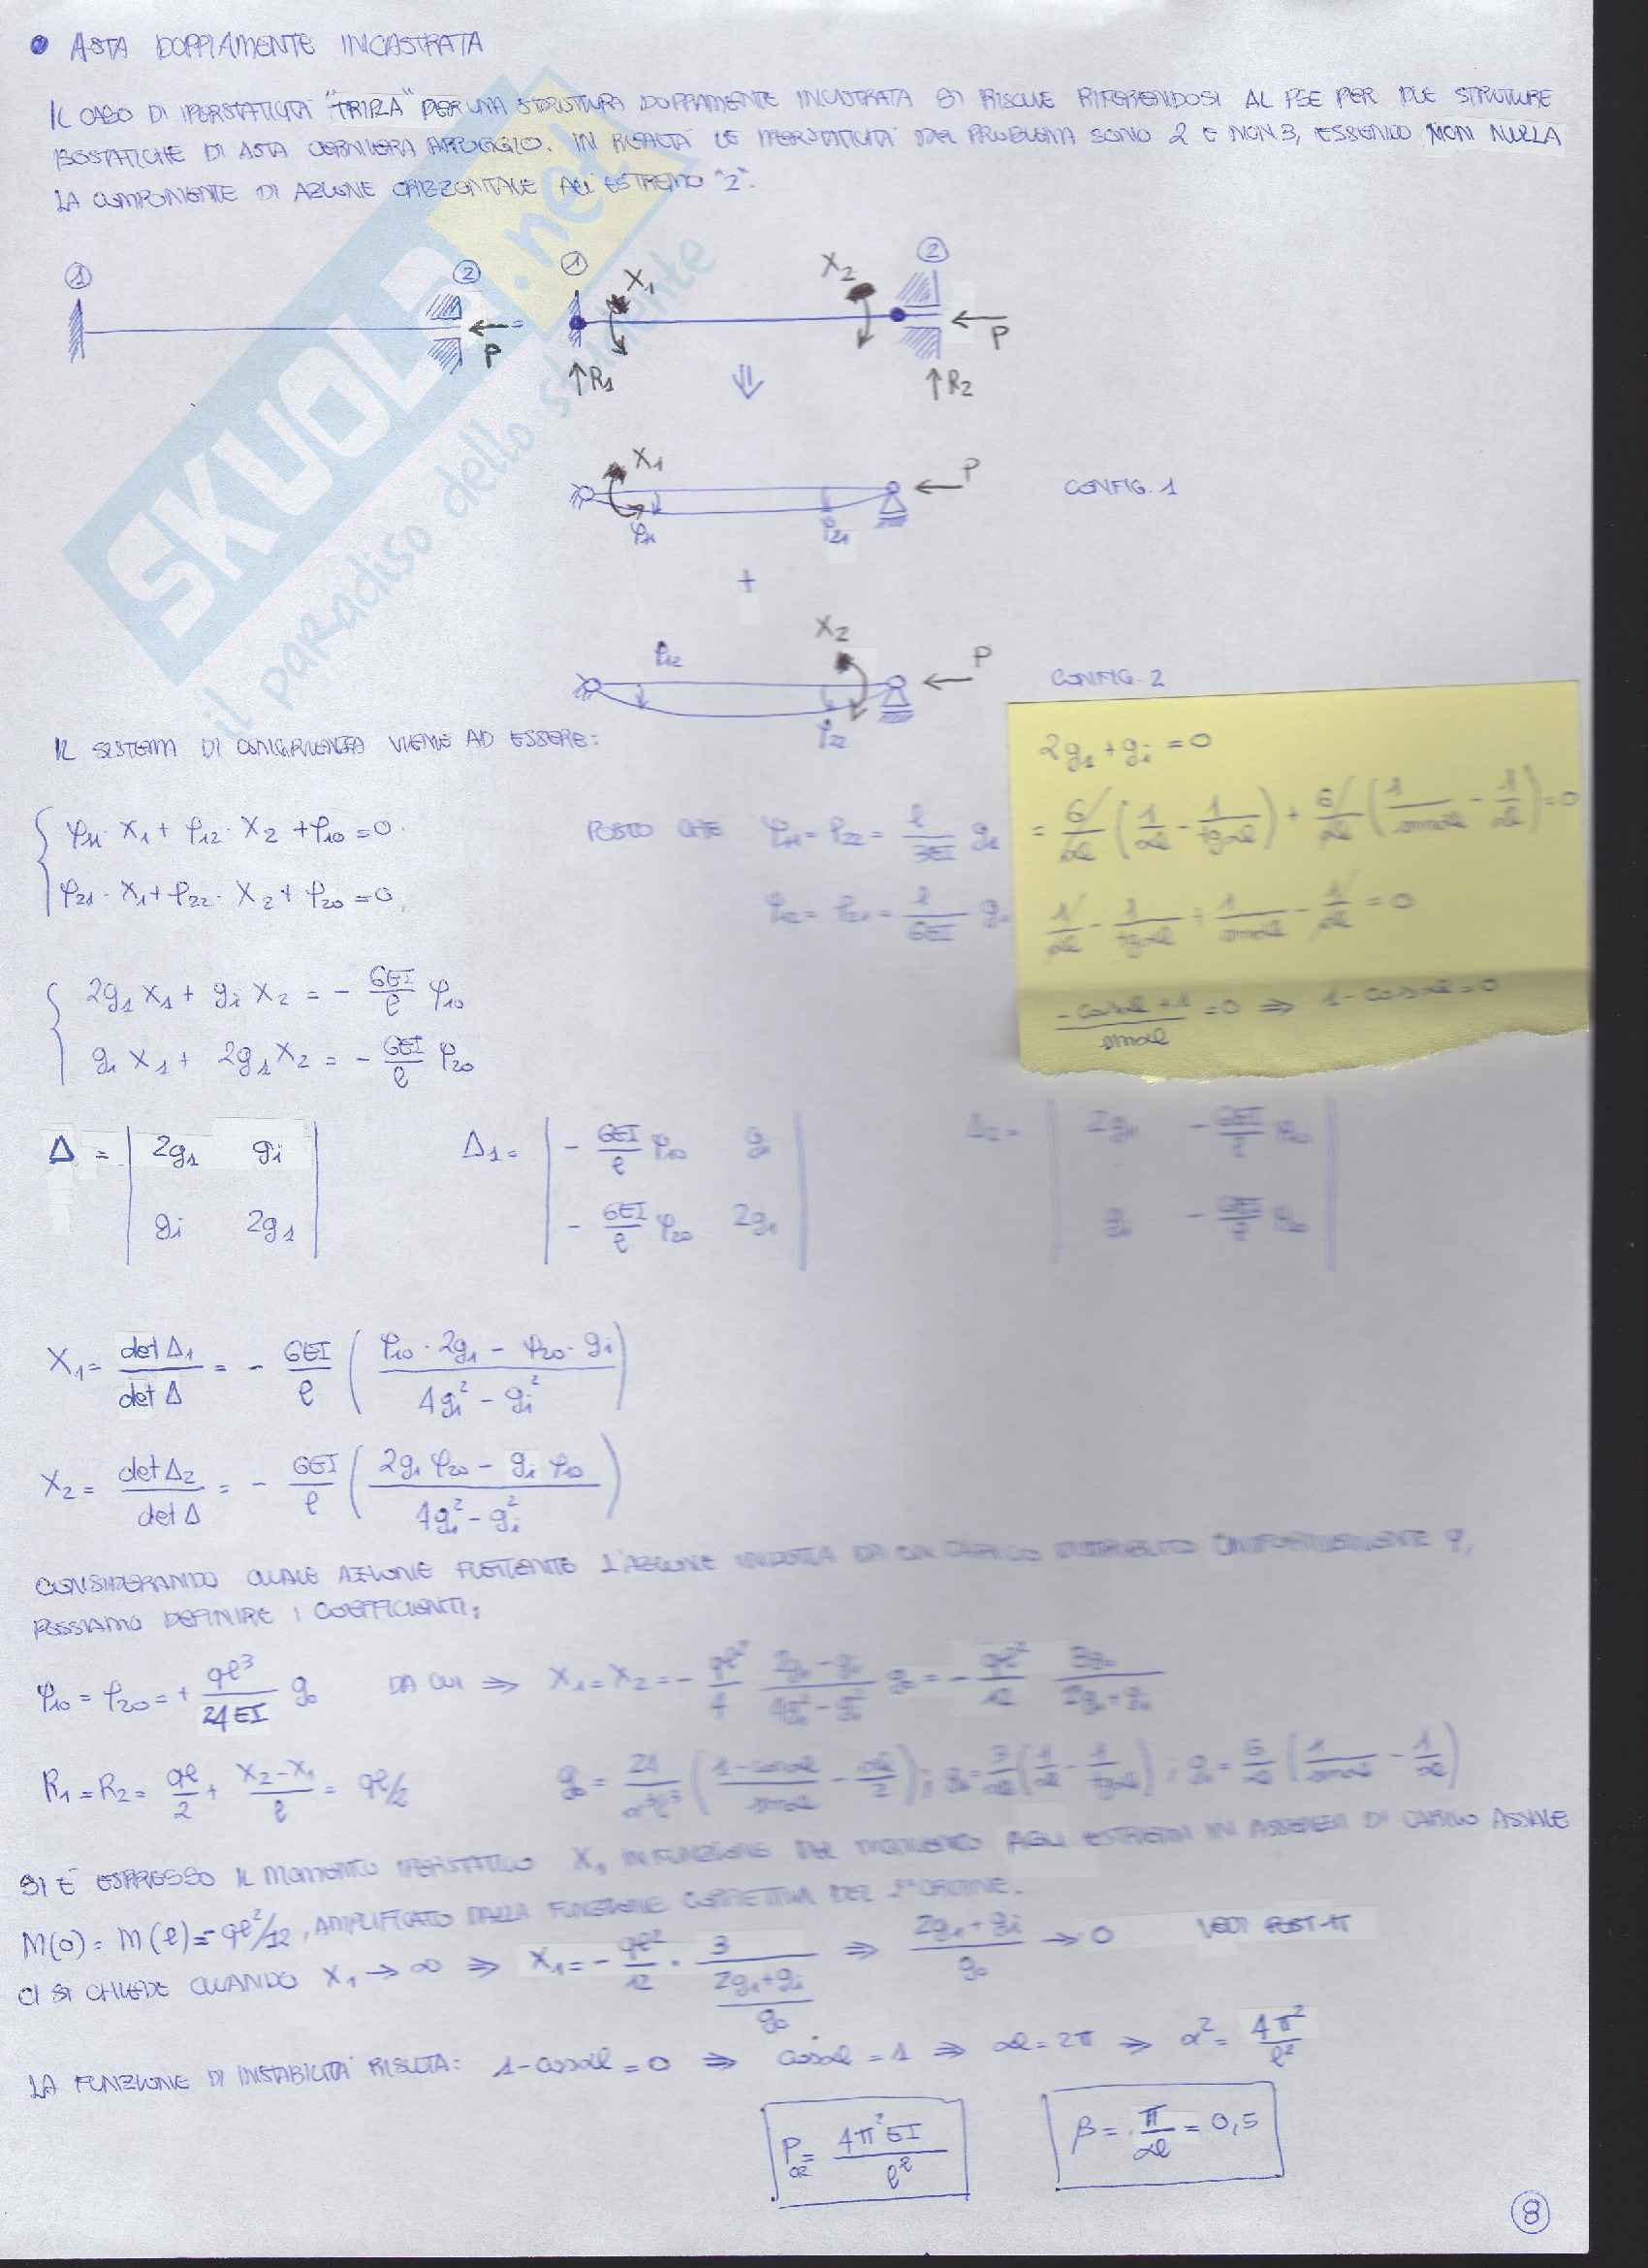 • ASTA DOPPIAMENTE INCASTRATA
IL CASO DI IPERSTATICITÀ "TRIPLA" PER UNA STRUTTURA DOPPIAMENTE INCASTRATA SI RISOLVE RIFERENDOSI AL PSE PER DUE STRUTTURE
ISOSTATICHE DI ASTA CERNIERA APPOGGIO. IN REALTÀ LE IPERSTATICITÀ DEL PROBLEMA SONO 2 E NON 3, ESSENDO NON NULLA
LA COMPONENTE DI AZIONE ORIZZONTALE ALL'ESTREMO "2".
1 2 P = 1 X1 X2 2 P
R1 R2
X1 P CONFIG. 1
φ11 φ21
+
X2 P CONFIG. 2
φ12 φ22
IL SISTEMA DI CONGRUENZA VIENE AD ESSERE:
φ11 · X1 + φ12 · X2 + φ10 = 0
φ21 · X1 + φ22 · X2 + φ20 = 0
POSTO CHE φ11 = φ22 = l/3EI g1
φ12 = φ21 = l/6EI gi
2g1 + gi = 0
= 6/αl (1/αl - 1/tgαl) + 6/αl (1/senαl - 1/αl) = 0
1/αl - 1/tgαl + 1/senαl - 1/αl = 0
(-cosαl + 1)/senαl = 0 ⇒ 1 - cosαl = 0
2g1 X1 + gi X2 = - 6EI/l φ10
gi X1 + 2g1 X2 = - 6EI/l φ20
Δ = | 2g1 gi | Δ1 = | - 6EI/l φ10 gi | Δ2 = | 2g1 - 6EI/l φ10 |
| gi 2g1 | | - 6EI/l φ20 2g1 | | gi - 6EI/l φ20 |
X1 = det Δ1 / det Δ = - 6EI/l ( (φ10 · 2g1 - φ20 · gi) / (4g1² - gi²) )
X2 = det Δ2 / det Δ = - 6EI/l ( (2g1 φ20 - gi φ10) / (4g1² - gi²) )
CONSIDERANDO QUALE AZIONE FLETTENTE L'AZIONE INDOTTA DA UN CARICO DISTRIBUITO UNIFORMEMENTE q,
POSSIAMO DEFINIRE I COEFFICIENTI:
φ10 = φ20 = + ql³/24EI g0 DA CUI ⇒ X1 = X2 = - ql²/4 (2g1 - gi)/(4g1² - gi²) g0 = - ql²/12 3g0/(2g1 + gi)
R1 = R2 = ql/2 + (X2 - X1)/l = ql/2 g0 = 24/α³l³ ((1 - cosαl)/senαl - αl/2); g1 = 3/αl (1/αl - 1/tgαl); gi = 6/αl (1/senαl - 1/αl)
SI È ESPRESSO IL MOMENTO IPERSTATICO X1 IN FUNZIONE DEL MOMENTO AGLI ESTREMI IN ASSENZA DI CARICO ASSIALE
M(0) = M(l) = ql²/12, AMPLIFICATO DALLA FUNZIONE CORRETTIVA DEL 2° ORDINE.
CI SI CHIEDE QUANDO X1 → ∞ ⇒ X1 = - ql²/12 · 3/((2g1 + gi)/g0) ⇒ (2g1 + gi)/g0 → 0 VEDI POST-IT
LA FUNZIONE DI INSTABILITÀ RISULTA: 1 - cosαl = 0 ⇒ cosαl = 1 ⇒ αl = 2π ⇒ α² = 4π²/l²
Pcr = 4π²EI/l² β = π/αl = 0,5
8
SKUOLA.net
il paradiso dello studente